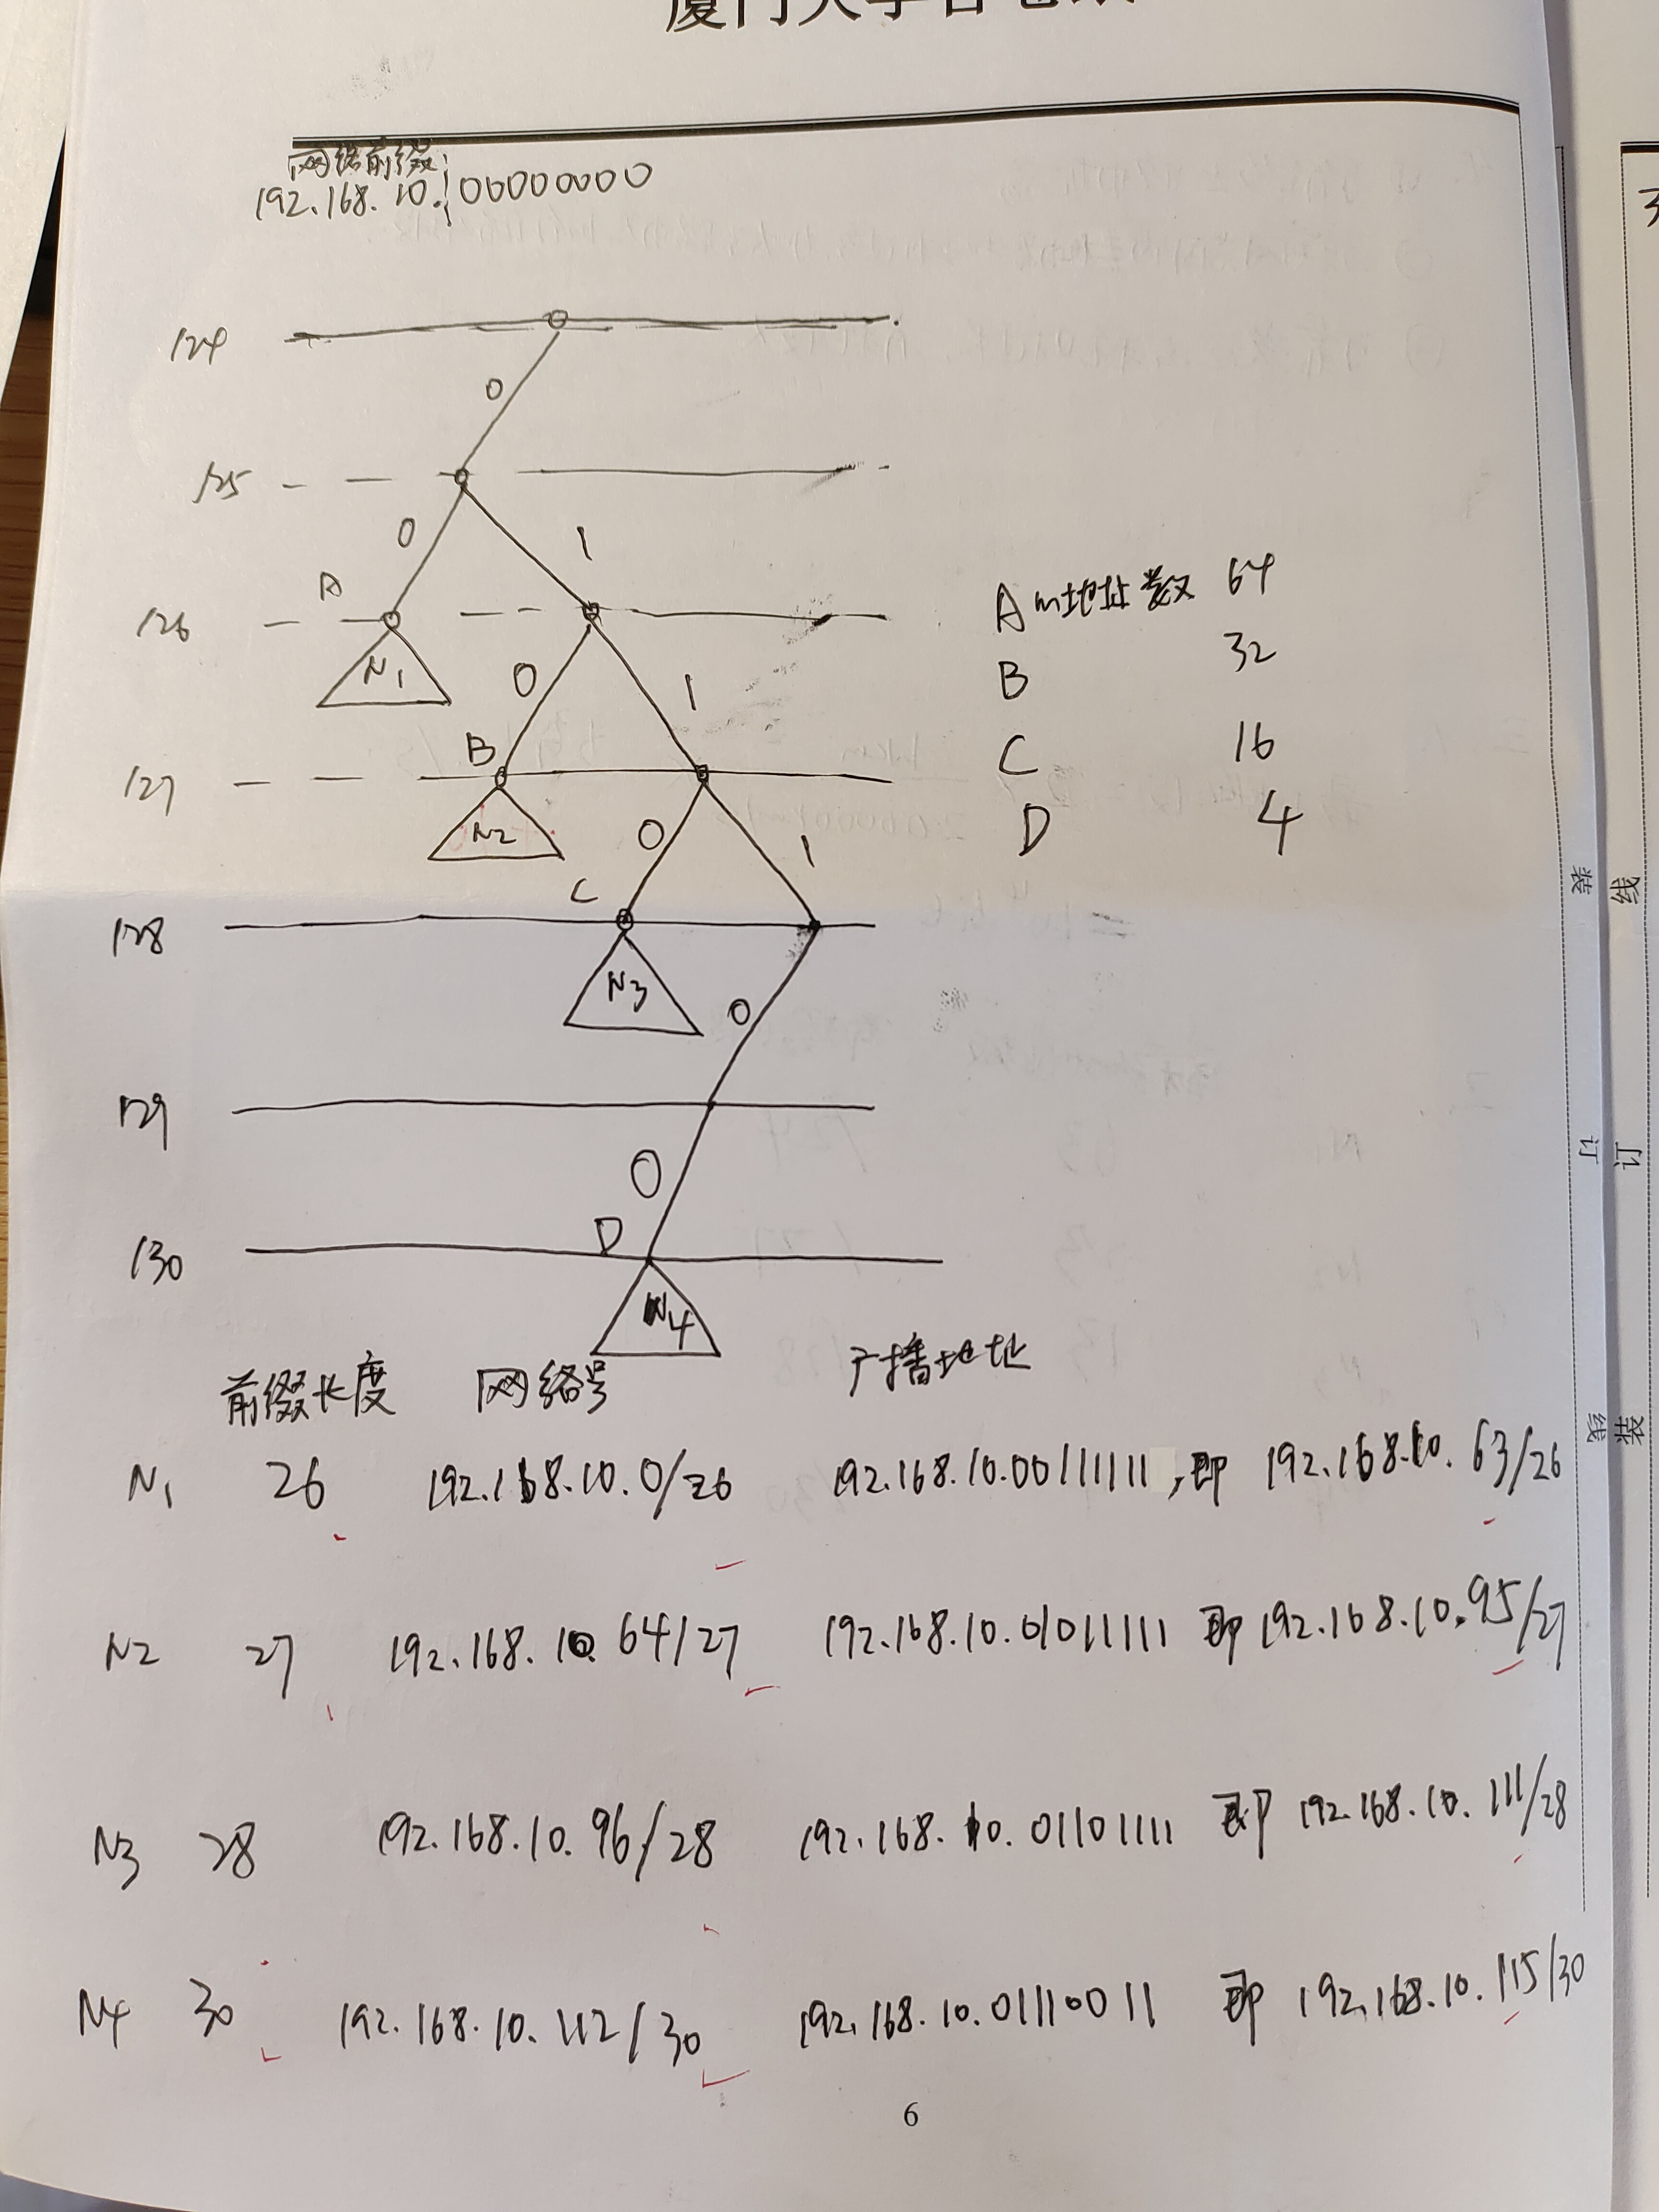 网络前缀
192.168.10.00000000
/24
0
/25
0 1
A
/26
N1
A的地址数 64
0 1
B 32
B
/27
C 16
N2
0 1
D 4
C
/28
N3
0
/29
0
D
/30
N4
前缀长度 网络号 广播地址
N1 26 192.168.10.0/26 192.168.10.00111111,即 192.168.10.63/26
N2 27 192.168.10.64/27 192.168.10.01011111 即 192.168.10.95/27
N3 28 192.168.10.96/28 192.168.10.01101111 即 192.168.10.111/28
N4 30 192.168.10.112/30 192.168.10.01110011 即 192.168.10.115/30
6
装
订
线
线
订
装